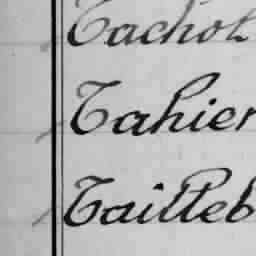 Tachot
Tahier
Tailleb